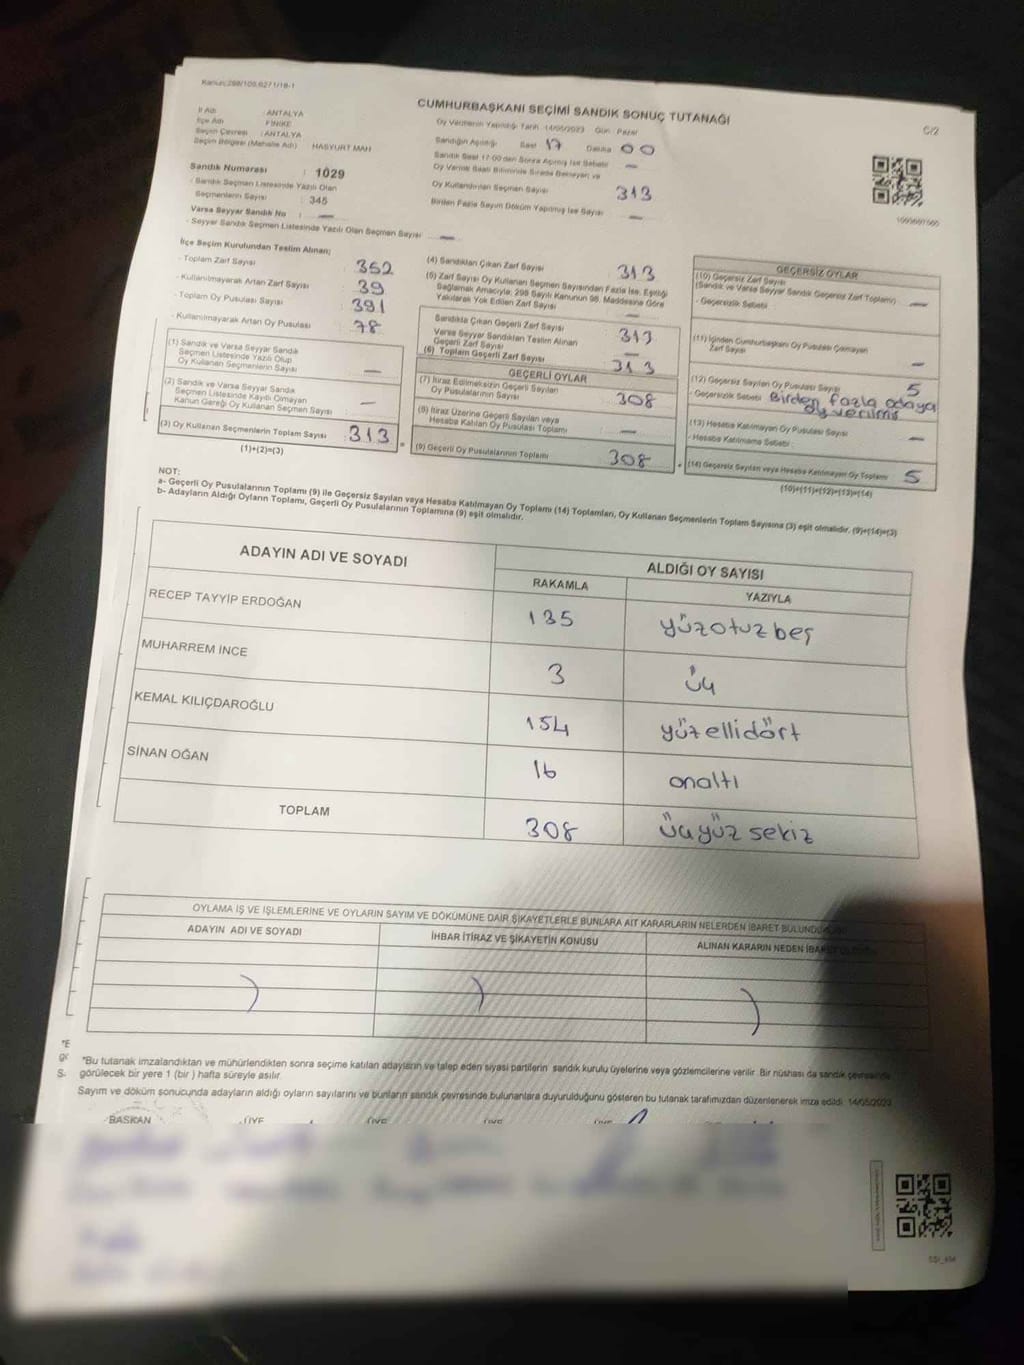 Kanun:298/105,6271/18-1
CUMHURBAŞKANI SEÇİMİ SANDIK SONUÇ TUTANAĞI
C/2
İl Adı : ANTALYA
İlçe Adı : FİNİKE
Seçim Çevresi : ANTALYA
Seçim Bölgesi (Mahalle Adı) HASYURT MAH
Oy Verilmenin Yapıldığı Tarih :14/05/2023 Gün : Pazar
Sandığın Açıldığı Saat 17 Dakika 00
Sandık Saat 17:00'den Sonra Açılmış İse Sebebi
Oy Verme Saati Bitiminde Sırada Bekleyen ve —
Oy Kullandırılan Seçmen Sayısı 313
Birden Fazla Sayım Döküm Yapılmış İse Sayısı —
Sandık Numarası : 1029
- Sandık Seçmen Listesinde Yazılı Olan
Seçmenlerin Sayısı : 345
Varsa Seyyar Sandık No : —
- Seyyar Sandık Seçmen Listesinde Yazılı Olan Seçmen Sayısı —
İlçe Seçim Kurulundan Teslim Alınan;
- Toplam Zarf Sayısı 352
- Kullanılmayarak Artan Zarf Sayısı 39
- Toplam Oy Pusulası Sayısı 391
- Kullanılmayarak Artan Oy Pusulası 78
(1) Sandık ve Varsa Seyyar Sandık
Seçmen Listesinde Yazılı Olup
Oy Kullanan Seçmenlerin Sayısı —
(2) Sandık ve Varsa Seyyar Sandık
Seçmen Listesinde Kayıtlı Olmayan
Kanun Gereği Oy Kullanan Seçmen Sayısı : —
(3) Oy Kullanan Seçmenlerin Toplam Sayısı : 313
(1)+(2)=(3)
(4) Sandıktan Çıkan Zarf Sayısı 313
(5) Zarf Sayısı Oy Kullanan Seçmen Sayısından Fazla İse, Eşitliği
Sağlamak Amacıyla; 298 Sayılı Kanunun 98. Maddesine Göre
Yakılarak Yok Edilen Zarf Sayısı —
Sandıkta Çıkan Geçerli Zarf Sayısı 313
Varsa Seyyar Sandıktan Teslim Alınan
Geçerli Zarf Sayısı —
(6) Toplam Geçerli Zarf Sayısı 313
GEÇERLİ OYLAR
(7) İtiraz Edilmeksizin Geçerli Sayılan
Oy Pusulalarının Sayısı 308
(8) İtiraz Üzerine Geçerli Sayılan veya
Hesaba Katılan Oy Pusulası Toplamı —
(9) Geçerli Oy Pusulalarının Toplamı 308
GEÇERSİZ OYLAR
1099697565
(10) Geçersiz Zarf Sayısı
(Sandık ve Varsa Seyyar Sandık Geçersiz Zarf Toplamı) —
- Geçersizlik Sebebi :
(11) İçinden Cumhurbaşkanı Oy Pusulası Çıkmayan
Zarf Sayısı —
(12) Geçersiz Sayılan Oy Pusulası Sayısı 5
- Geçersizlik Sebebi : Birden fazla adaya
oy verilmiş
(13) Hesaba Katılmayan Oy Pusulası Sayısı —
- Hesaba Katılmama Sebebi :
(14) Geçersiz Sayılan veya Hesaba Katılmayan Oy Toplamı 5
(10)+(11)+(12)+(13)=(14)
NOT:
a- Geçerli Oy Pusulalarının Toplamı (9) ile Geçersiz Sayılan veya Hesaba Katılmayan Oy Toplamı (14) Toplamları, Oy Kullanan Seçmenlerin Toplam Sayısına (3) eşit olmalıdır. (9)+(14)=(3)
b- Adayların Aldığı Oyların Toplamı, Geçerli Oy Pusulalarının Toplamına (9) eşit olmalıdır.
ADAYIN ADI VE SOYADI ALDIĞI OY SAYISI
RAKAMLA YAZIYLA
RECEP TAYYİP ERDOĞAN 135 yüzotuzbeş
MUHARREM İNCE 3 üç
KEMAL KILIÇDAROĞLU 154 yüzellidört
SİNAN OĞAN 16 onaltı
TOPLAM 308 üçyüz sekiz
OYLAMA İŞ VE İŞLEMLERİNE VE OYLARIN SAYIM VE DÖKÜMÜNE DAİR ŞİKAYETLERLE BUNLARA AİT KARARLARIN NELERDEN İBARET BULUNDUĞU
ADAYIN ADI VE SOYADI İHBAR İTİRAZ VE ŞİKAYETİN KONUSU ALINAN KARARIN NEDEN İBARET OLDUĞU
*Bu tutanak imzalandıktan ve mühürlendikten sonra seçime katılan adayların ve talep eden siyasi partilerin sandık kurulu üyelerine veya gözlemcilerine verilir. Bir nüshası da sandık çevresinde
görülecek bir yere 1 (bir ) hafta süreyle asılır.
Sayım ve döküm sonucunda adayların aldığı oyların sayılarını ve bunların sandık çevresinde bulunanlara duyurulduğunu gösteren bu tutanak tarafımızdan düzenlenerek imza edildi. 14/05/2023
BAŞKAN ÜYE ÜYE ÜYE ÜYE